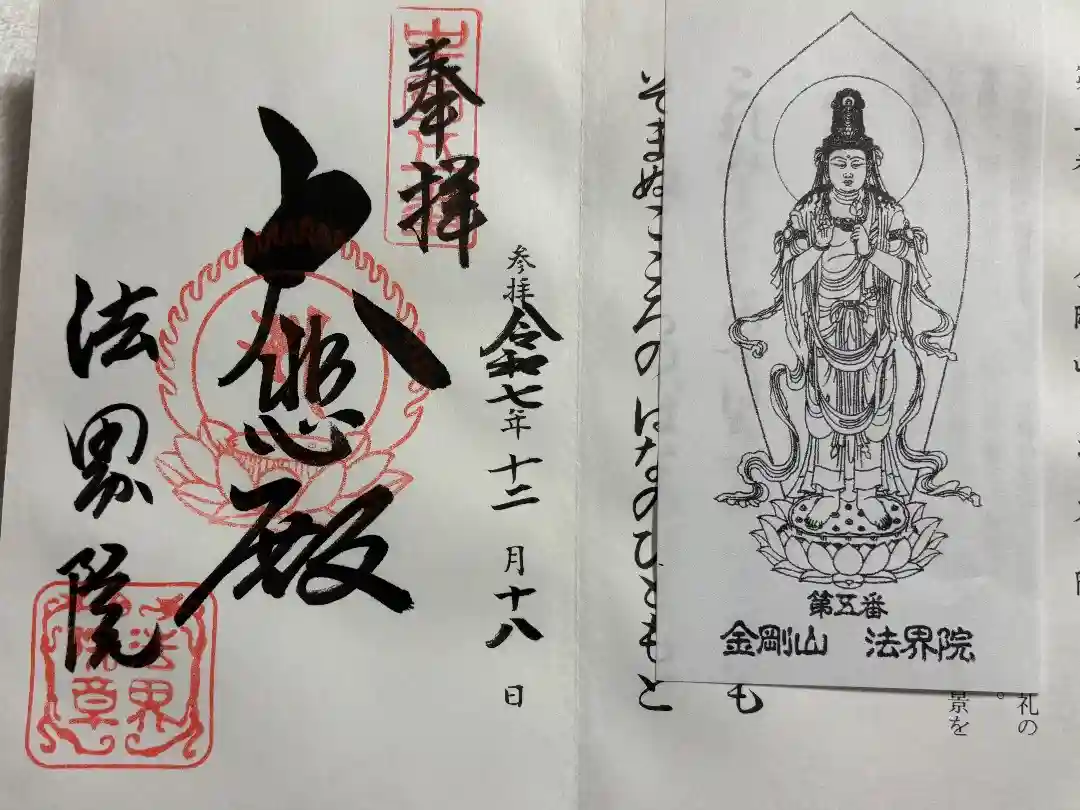 奉拝
参拝 令和七年十二月十八日
大悲殿
法界院
法界
院章
そまぬこころの はなのひともと
も
第五番
金剛山 法界院
礼の
景を